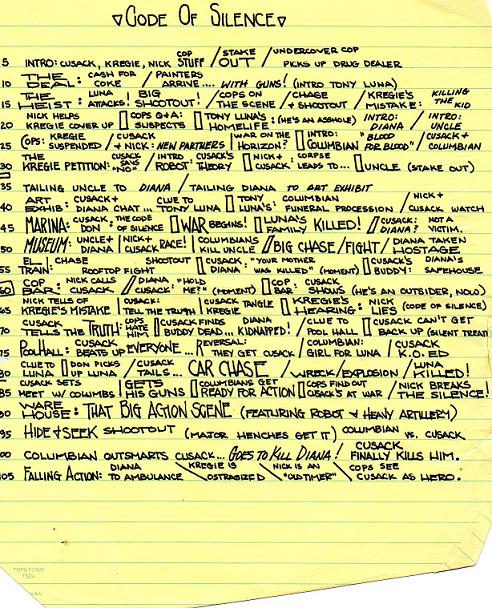 ▽CODE OF SILENCE▽
5 INTRO: CUSACK, KREGIE, NICK COP STUFF / STAKE OUT / UNDERCOVER COP PICKS UP DRUG DEALER
10 THE DEAL: CASH FOR COKE / PAINTERS ARRIVE.... WITH GUNS! (INTRO TONY LUNA)
15 THE HEIST: LUNA ATTACKS: | BIG SHOOTOUT! / COPS ON THE SCENE / CHASE & SHOOTOUT / KREGIE'S MISTAKE: KILLING THE KID
20 NICK HELPS KREGIE COVER UP COPS Q&A: SUSPECTS TONY LUNA'S HOMELIFE (HE'S AN ASSHOLE) INTRO: DIANA / INTRO: UNCLE
25 COPS: KREGIE SUSPENDED / CUSACK & NICK: NEW PARTNERS | WAR ON THE HORIZON? INTRO: COLUMBIAN "BLOOD FOR BLOOD" / CUSACK + COLUMBIAN
30 THE KREGIE PETITION: CUSACK SAYS "NO" / INTRO ROBOT: CUSACK'S THEORY NICK + CUSACK : CORPSE LEADS TO... UNCLE (STAKE OUT)
35 TAILING UNCLE TO DIANA / TAILING DIANA TO ART EXHIBIT
40 ART EXHIB: CUSACK + DIANA CHAT ... CLUE TO TONY LUNA TONY LUNA'S: COLUMBIAN FUNERAL PROCESSION / NICK + CUSACK WATCH
45 MARINA: CUSACK, "DON" THE CODE OF SILENCE WAR BEGINS! LUNA'S FAMILY KILLED! CUSACK: DIANA? NOT A VICTIM.
50 MUSEUM: UNCLE + DIANA | NICK + CUSACK RACE! | COLUMBIANS KILL UNCLE BIG CHASE/FIGHT / DIANA TAKEN HOSTAGE
55 EL TRAIN: | CHASE ROOFTOP FIGHT SHOOTOUT CUSACK: "YOUR MOTHER DIANA WAS KILLED" (MOMENT) CUSACK'S BUDDY: DIANA'S SAFEHOUSE
60 COP BAR: NICK CALLS CUSACK / DIANA CUSACK: "HOLD ME?" (MOMENT) COP BAR: CUSACK SHOWS (HE'S AN OUTSIDER, NOLO)
65 NICK TELLS OF KREGIE'S MISTAKE | CUSACK: TELL THE TRUTH | CUSACK TANGLE KREGIE KREGIE'S HEARING: NICK LIES (CODE OF SILENCE)
70 CUSACK TELLS THE TRUTH: COPS HATE HIM CUSACK FINDS BUDDY DEAD... DIANA KIDNAPPED! / CLUE TO POOL HALL CUSACK CAN'T GET BACK UP (SILENT TREAT
75 POOLHALL: CUSACK BEATS UP EVERYONE... REVERSAL: THEY GET CUSACK / COLUMBIAN: GIRL FOR LUNA / CUSACK K.O.ED
80 CLUE TO LUNA DON PICKS UP LUNA / CUSACK TAILS... CAR CHASE / WRECK/EXPLOSION / LUNA KILLED!
85 CUSACK SETS MEET W/ COLUMBS GETS HIS GUNS COLUMBIANS GET READY FOR ACTION COPS FIND OUT CUSACK'S AT WAR / NICK BREAKS THE SILENCE!
90 WARE HOUSE: THAT BIG ACTION SCENE (FEATURING ROBOT & HEAVY ARTILLERY)
95 HIDE & SEEK SHOOTOUT (MAJOR HENCHES GET IT) COLUMBIAN vs. CUSACK
00 COLUMBIAN OUTSMARTS CUSACK... GOES TO KILL DIANA! CUSACK FINALLY KILLS HIM.
105 FALLING ACTION: DIANA TO AMBULANCE \ KREGIE IS OSTRASIZED \ NICK IS AN "OLD TIMER" \ COPS SEE CUSACK AS HERO.
TOPS FORM
7524
USA